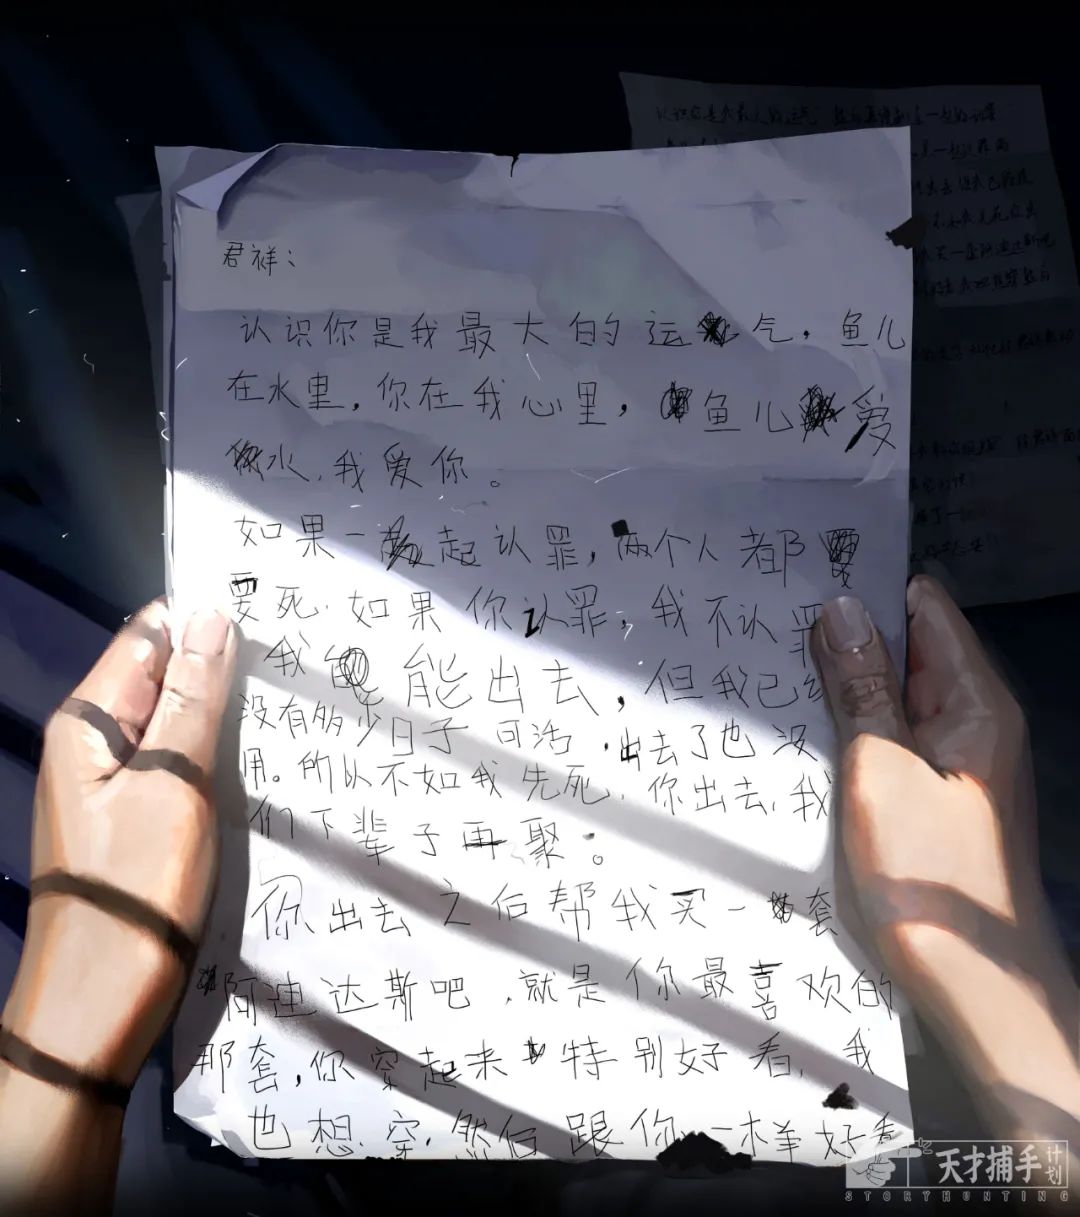 君祥：
认识你是我最大的运气，鱼儿
在水里，你在我心里，鱼儿爱
水，我爱你。
如果一起认罪，两个人都
要死，如果你认罪，我不认罪
我能出去，但我已经
没有多少日子可活，出去了也没
用。所以不如我先死，你出去，我
们下辈子再聚。
你出去之后帮我买一套
阿迪达斯吧，就是你最喜欢的
那套，你穿起来特别好看，我
也想穿，然后跟你一样好看
天才捕手计划
STORYHUNTING